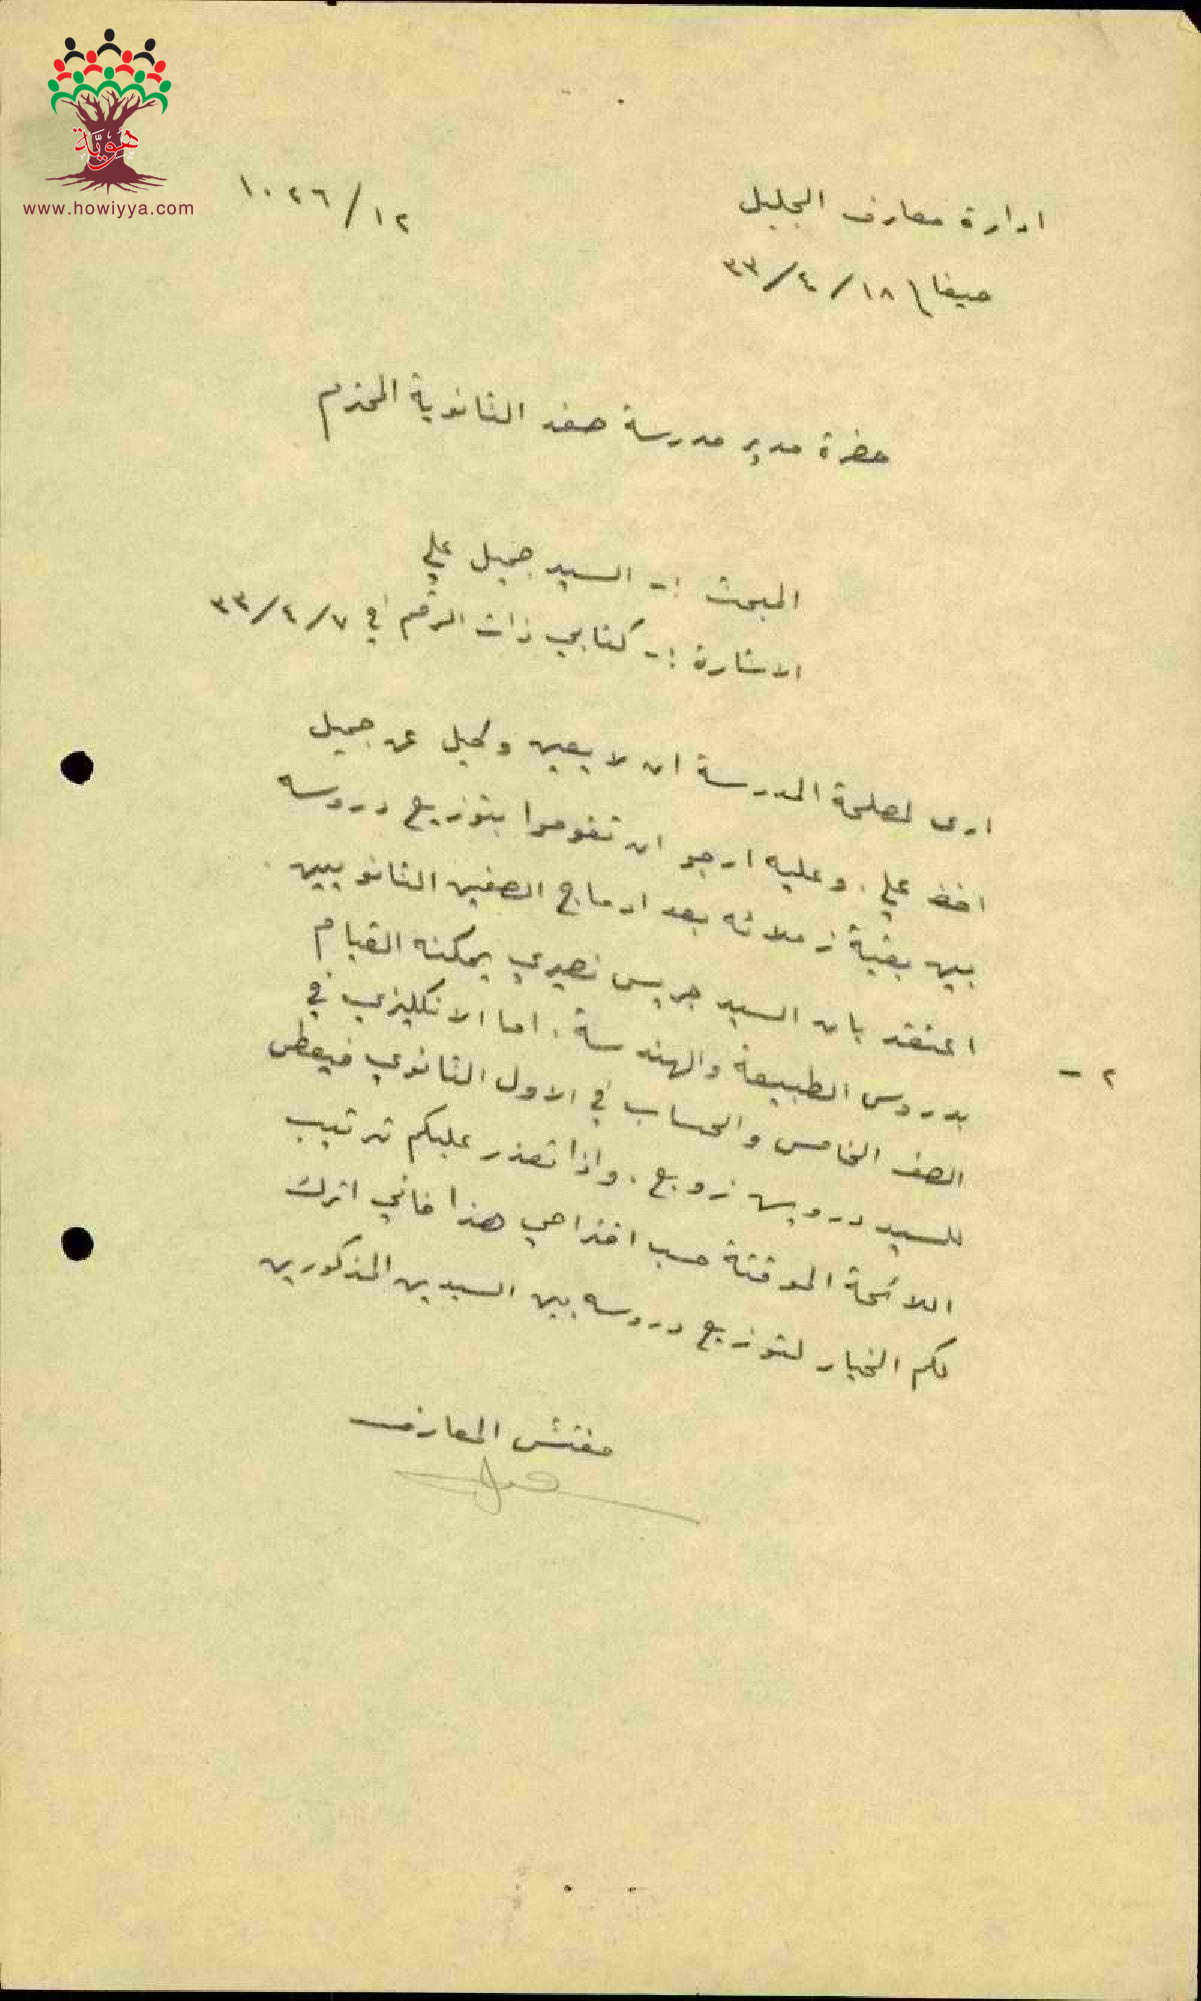 هوية
www.howiyya.com
ادارة معارف الجليل
١٠٢٦/١٢
حيفا \ ١٨/٤/٣٣
حضرة مدير مدرسة صفد الثانوية المحترم
المبحث :- السيد جميل علي
الاشارة :- كتابي ذات الرقم في ٧/٤/٣٣
ارى لمصلحة المدرسة ان لا يعين وكيل عن جميل
افندي علي. وعليه ارجو ان تقوموا بتوزيع دروسه
بين بقية زملائه بعد ادماج الصفين الثانويين.
٢ - اعتقد بان السيد جريس نصيري يمكنه القيام
بدروس الطبيعة والهندسة. اما الانكليزي في
الصف الخامس والحساب في الاول الثانوي فيعطى
للسيد درويش. واذا تعذر عليكم ترتيب
اللائحة الموقتة حسب اقتراحي هذا فاني اترك
لكم الخيار لتوزيع دروسه بين السيدين المذكورين
مفتش المعارف